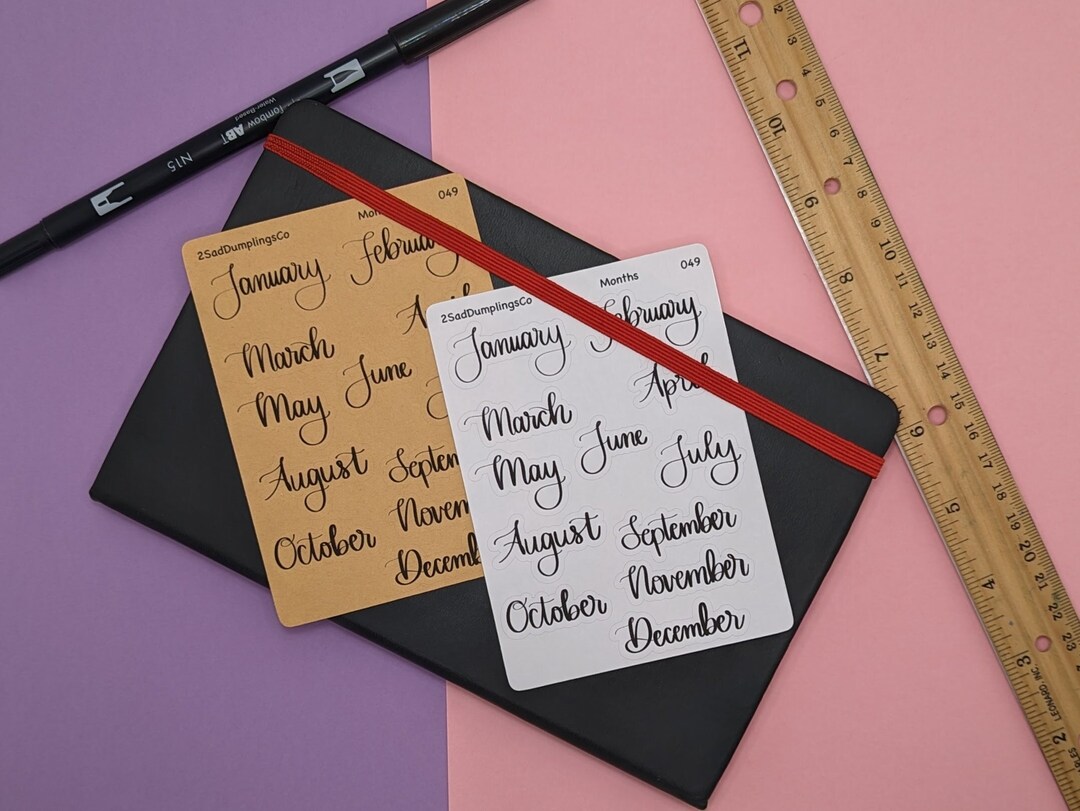 Tombow ABT
Water Based
N15
2SadDumplingsCo
Mon
049
January
Februa
March
April
May
June
August
Septem
October
Novem
Decemb
2SadDumplingsCo
Months
049
January
February
March
April
May
June
July
August
September
October
November
December
11
10
9
8
7
6
5
4
3
2
2
3
4
5
6
7
8
9
10
11
12
13
14
15
16
17
18
19
20
21
22
23
LEONARD INC.